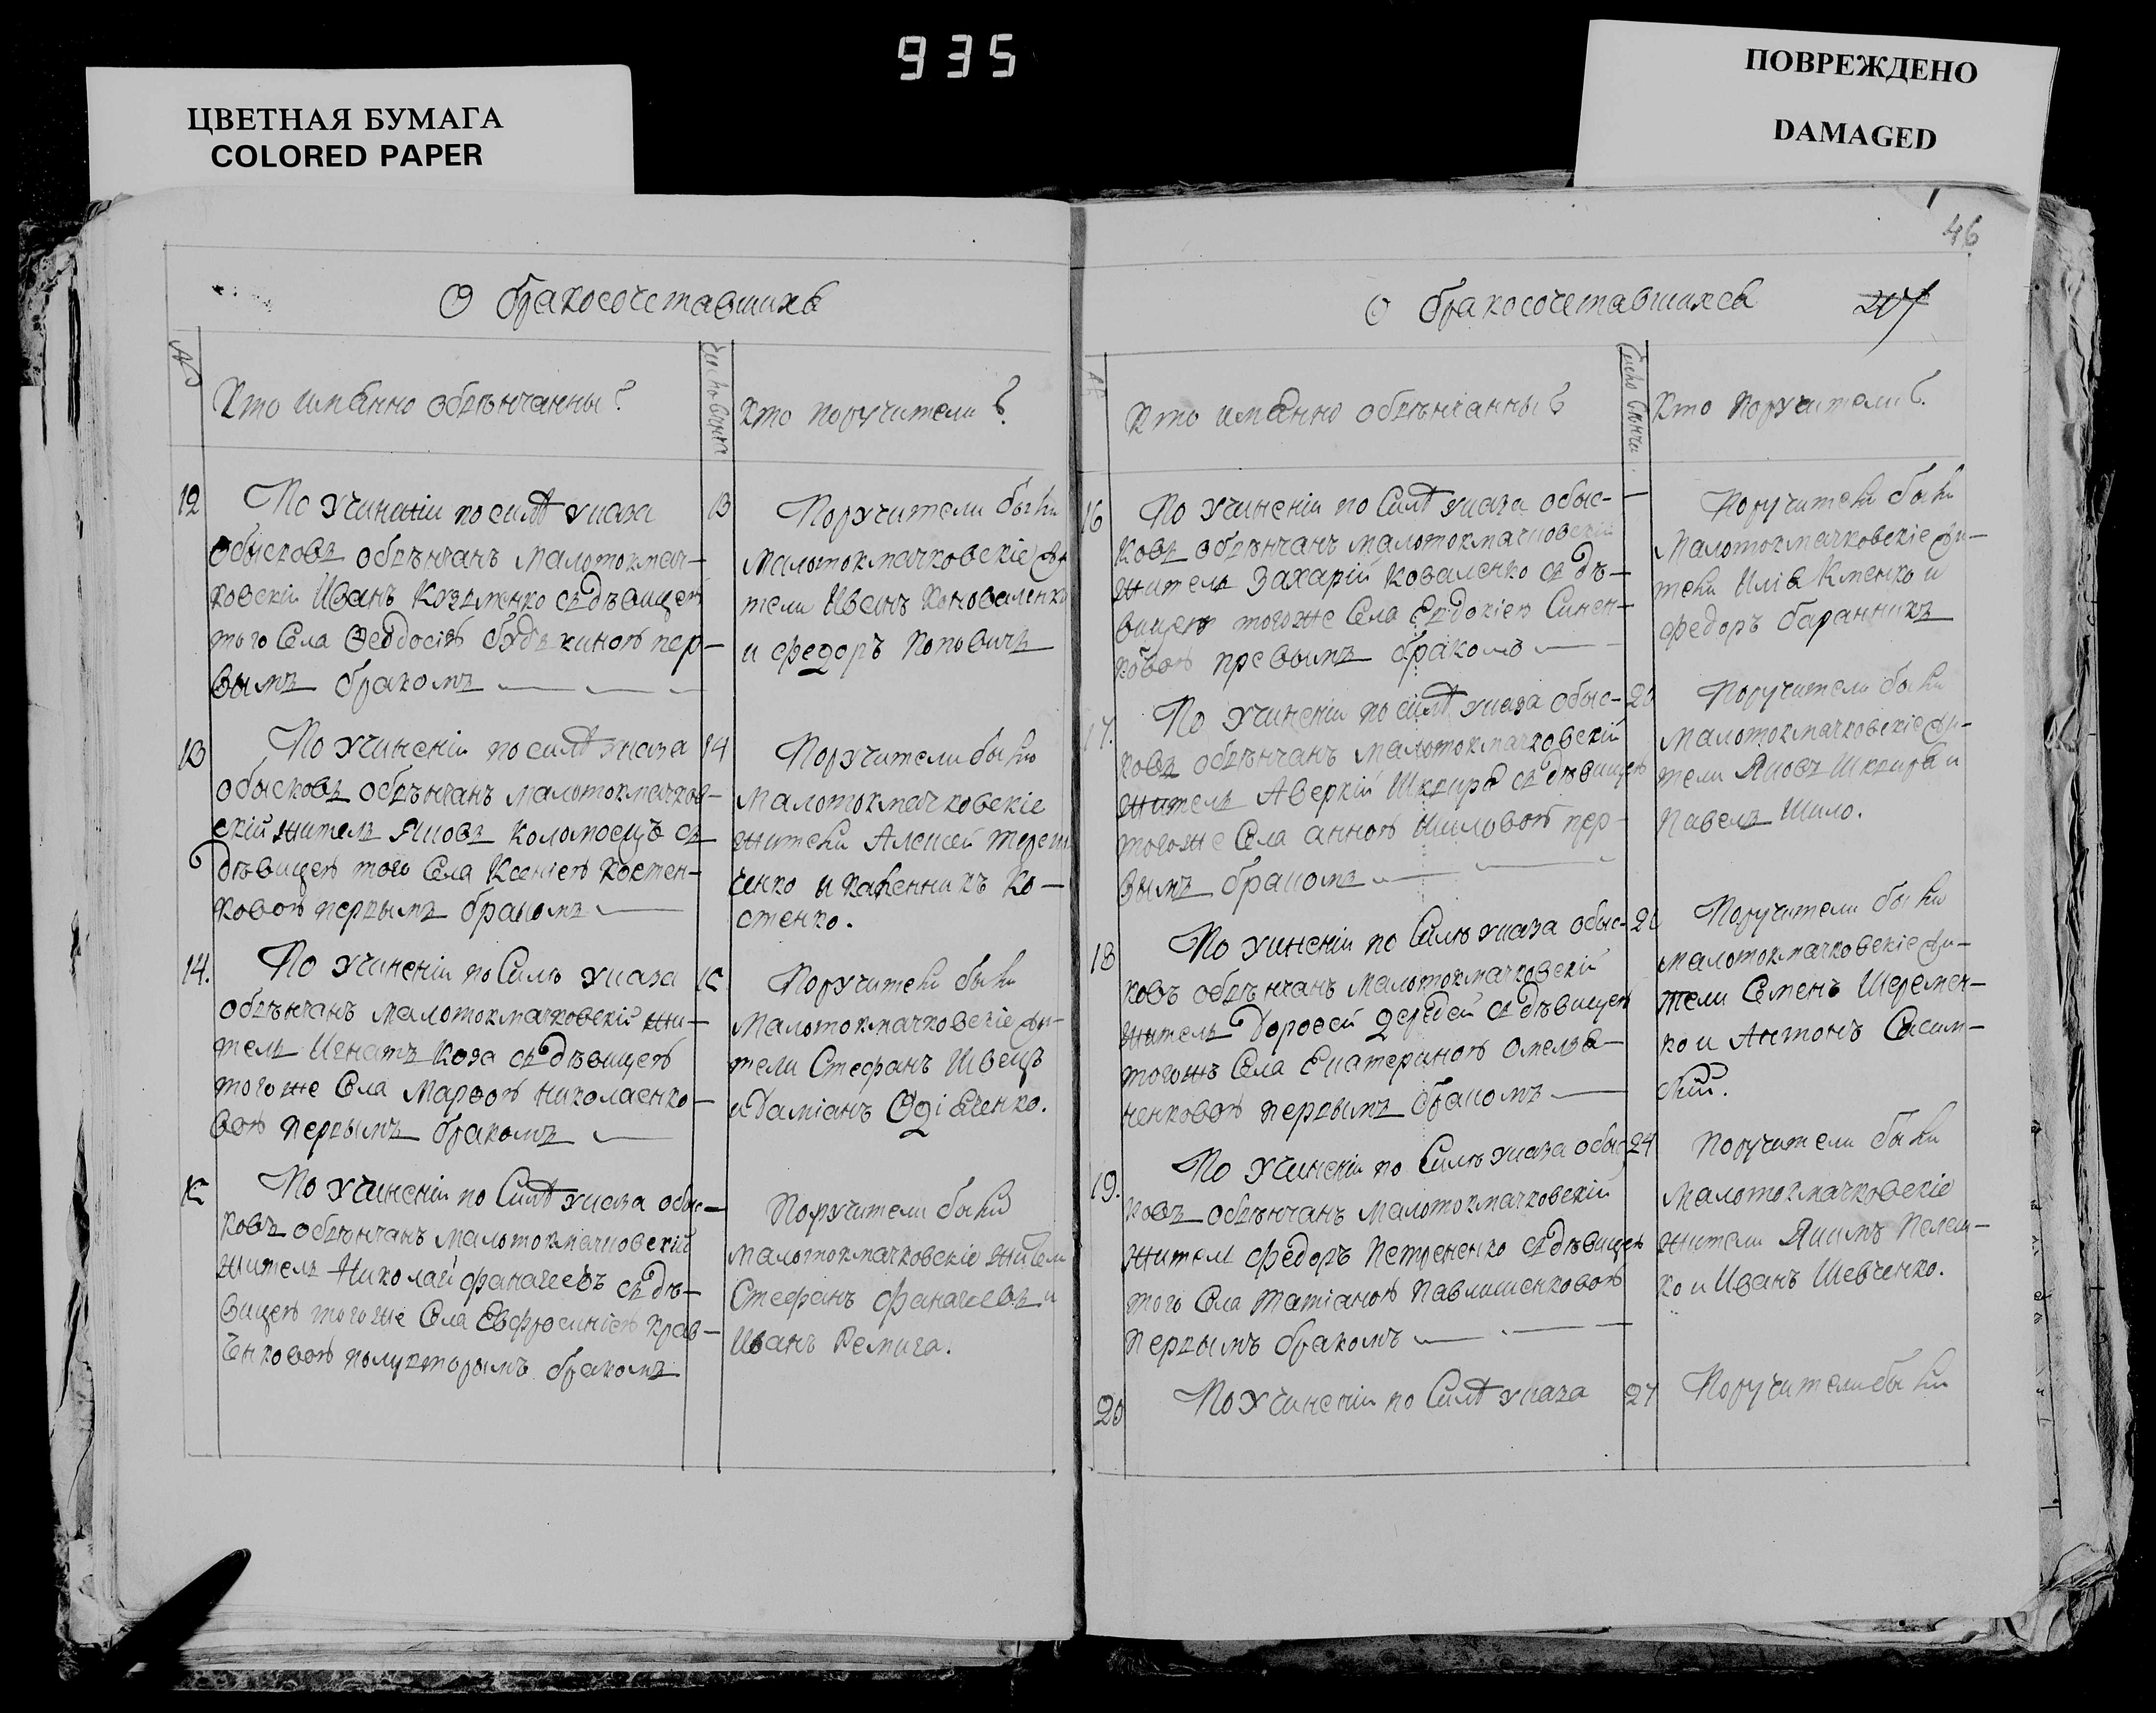 935
ЦВЕТНАЯ БУМАГА
COLORED PAPER
ПОВРЕЖДЕНО
DAMAGED
О бракосочетавшихъ
№
Кто имѧнно обвѣнчанны?
Кто поручители?
12
По учиненіи по силѣ указа
обысковъ обвѣнчанъ малотокмач-
ковскій Иванъ Козьменко съ дѣвицею
того Села Ѳеодосіею
первымъ бракомъ
13
Поручители были
малотокмачковскіе жи-
тели Иванъ Коноваленко
и Федоръ Поповичъ
13
По учиненіи по силѣ указа
обысковъ обвѣнчанъ малотокмачков-
скій житель Яковъ Коломоецъ съ
дѣвицею того Села Ксеніею Костен-
ковою первымъ бракомъ
14
Поручители были
малотокмачковскіе
жители Алексей Терещ
ченко и Ко-
стенко.
14.
По учиненіи по Силѣ указа
обвѣнчанъ малотокмачковскій жи-
тель Игнатъ Коза съ дѣвицею
того же Села Марѳою Николаенко-
вою первымъ бракомъ
15
Поручители были
малотокмачковскіе жи-
тели Стефанъ Швецъ
и Даміанъ
15
По учиненіи по Силѣ указа обыс-
ковъ обвѣнчанъ малотокмачковскій
житель Николай Фаначеевъ съ дѣ-
вицею того же Села Евфросиніею Крав-
ченковою полувторымъ бракомъ
Поручители были
малотокмачковскіе жители
Стефанъ Фаначеевъ и
Иванъ Ремига.
46
О бракосочетавшихся
207
Кто имѧнно обвѣнчанны?
Кто поручители?
16
По учиненіи по Силѣ указа обыс-
ковъ обвѣнчанъ малотокмачковскій
житель Захарій Коваленко съ дѣ-
вицею того же Села Евдокіею Синен-
ковою првымъ бракомъ
Поручители были
малотокмачковскіе жи-
тели Иліа Кменко и
Федоръ Баранникъ
17.
По учиненіи по силѣ указа обыс-
ковъ обвѣнчанъ малотокмачковскій
житель Аверкій Шквира съ дѣвицею
того же Села Анною Шиловою пер-
вымъ бракомъ
20
Поручители были
малотокмачковскіе жи-
тели Яковъ Шквира и
Павелъ Шило.
18
По учиненіи по Силѣ указа обыс-
ковъ обвѣнчанъ малотокмачковскій
житель Дороѳей Дередей съ дѣвицею
тогожъ Села Екатериною Омелья-
ненковою первымъ бракомъ
Поручители были
малотокмачковскіе жи-
тели Семенъ Шеремен-
ко и Антонъ
19.
По учиненіи по Силѣ указа обыс
ковъ обвѣнчанъ малотокмачковскій
житель Федоръ Петрененко съ дѣвицею
того Села Татіаною Павлишенковою
первымъ бракомъ
24
Поручители были
малотокмачковскіе
жители Якимъ Пелеш-
ко и Иванъ Шевченко.
20
По учиненіи по Силѣ указа
27
Поручители были